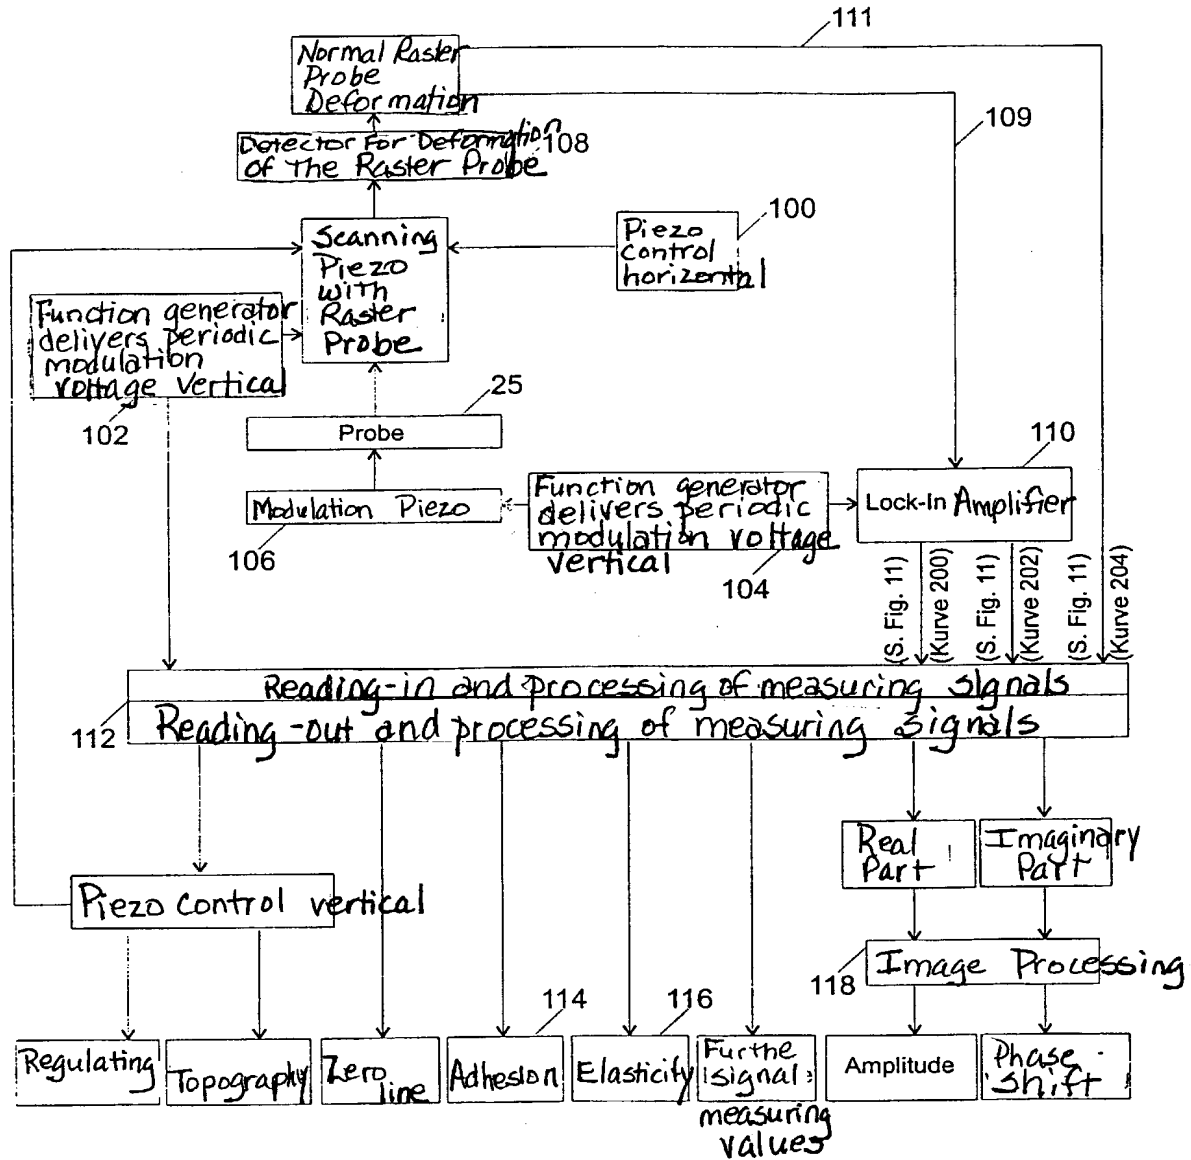 111
Normal Raster
Probe
Deformation
109
Detector For Deformation
of The Raster Probe
108
100
Scanning
Piezo
with
Raster
Probe
Piezo
control
horizontal
Function generator
delivers periodic
modulation
voltage vertical
102
25
Probe
110
Modulation Piezo
106
Function generator
delivers periodic
modulation voltage
vertical
104
Lock-In Amplifier
(S. Fig. 11)
(Kurve 200)
(S. Fig. 11)
(Kurve 202)
(S. Fig. 11)
(Kurve 204)
Reading-in and processing of measuring signals
Reading-out and processing of measuring signals
112
Real
Part
Imaginary
Part
Piezo control vertical
Image Processing
118
114
116
Regulating
Topography
Zero
line
Adhesion
Elasticity
Furthe
signal
measuring
values
Amplitude
Phase
Shift